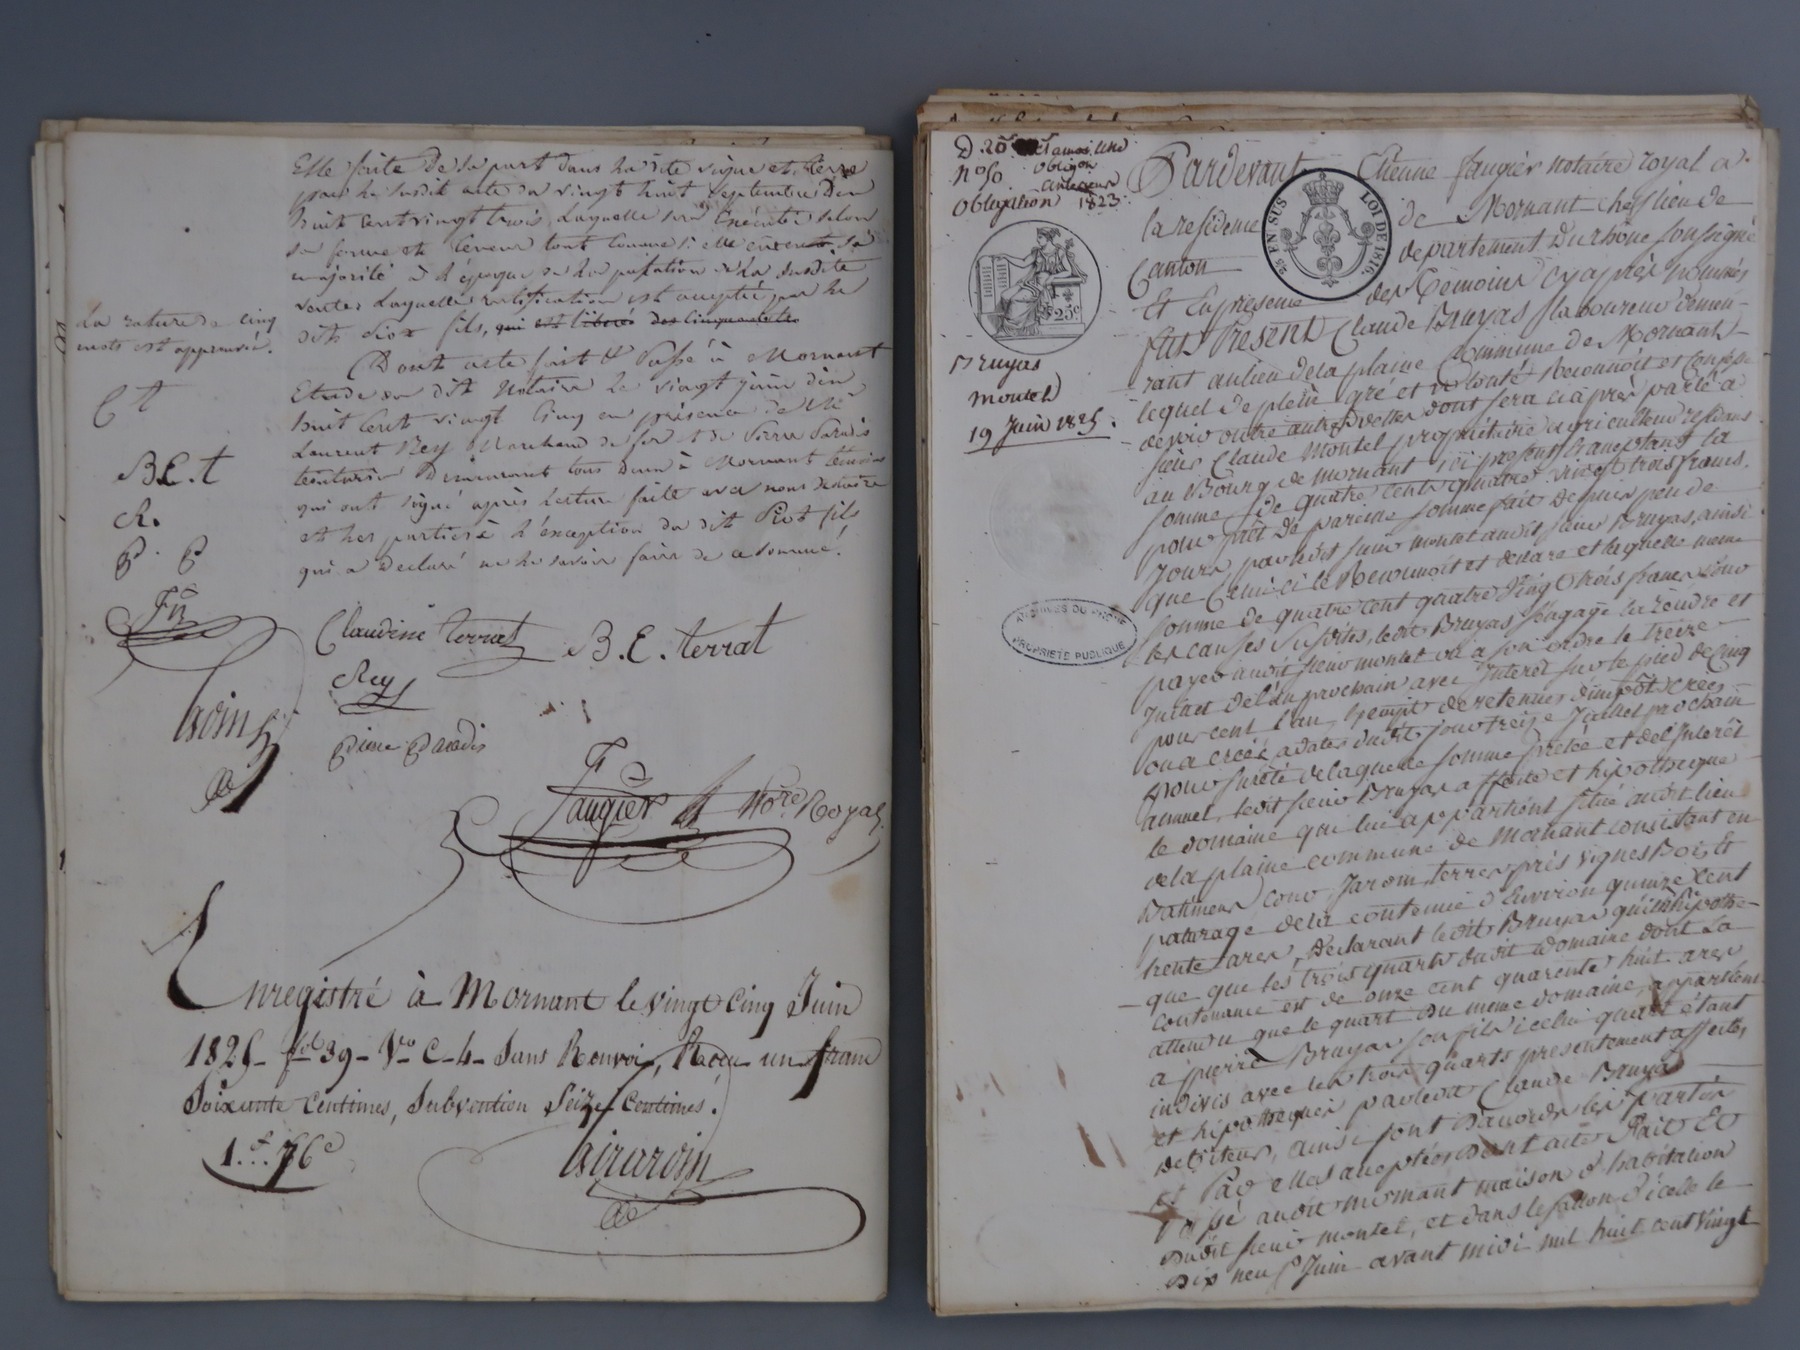 Elle faite de sa part dans la dite vigne et terre
par le susdit acte du vingt huit septembre dix
huit cent vingt trois, laquelle sera Exécutée selon
sa forme et teneur tout comme si elle
majorité à l'époque de la passation de la susdite
vente; Laquelle ratification est acceptée par le
dit Piot fils, qui est libéré des cinquante
Dont acte fait & Passé à Mornant
Etude du dit Notaire le vingt juin dix
huit cent vingt cinq en présence de Mr
Laurent Rey Marchand de fer & de Pierre Paradis
teinturier Demeurant tous deux à Mornant témoins
qui ont signé après lecture faite avec nous Notaire
et les parties à l'exception du dit Piot fils
qui a déclaré ne le savoir faire de ce sommé.
La rature de cinq
mots est approuvée.
C t
B.E.t
R.
P. P
Claudine terrat B.E. terrat
Rey
Pierre Paradis
Faugier Nore. Royal.
Enregistré à Mornant le vingt cinq Juin
1825 - fol 39 - Vo C-4 - Sans Renvoi, Reçu un franc
Soixante Centimes, Subvention Seize Centimes.
1.f..76c
Girardin
D 20
no 50
Obligation 1823
25c
Bruyas
Montel
19 Juin 1825.
ARCHIVES DU RHONE
PROPRIETE PUBLIQUE
25 EN SUS LOI DE 1816.
Pardevant Etienne faugier Notaire royal a
la residence de Mornant chef lieu de
Canton departement Durhone soussigné
Et En presence des Temoins cy après nommés
fut Present Claude Bruyas laboureur demeu-
rant au lieu de la plaine Commune de Mornant
lequel de plein gré et volonté Reconnoit et Confesse
devoir outre autres dettes dont sera ci après parlé a
sieur Claude Montel propriétaire agriculteur residant
au Bourg de Mornant ici present et acceptant la
somme de quatre cents quatre vingt trois francs.
pour prêt de pareille somme fait depuis peu de
Jours par ledit sieur montel audit sieur Bruyas, ainsi
que Celui ci le Reconnoit et declare et laquelle meme
somme de quatre cent quatre Vingt trois francs pour
les causes susdites, ledit Bruyas s'engage la rendre et
payer audit sieur montel ou a son ordre le treize
Juillet de l'an prochain avec Interet sur le pied de Cinq
pour cent l'an, Exempt de retenues d'impôt crées
ou a créer a dater dudit jour treize Juillet prochain
pour sureté de laquelle somme pretée et de l'Interêt
annuel, ledit sieur Bruyas affecte et hipotheque
le domaine qui lui appartient situé audit lieu
de la plaine commune de Mornant consistant en
Batimens cour Jardin, terres prés vignes Bois et
paturage de la contenue d'Environ quinze cent
trente ares, Declarant ledit Bruyas qu'il n'hipothe-
que que les trois quarts dudit domaine dont La
contenance est de onze cent quarente huit ares
attendu que le quart du meme domaine, appartient
a pierre Bruyas son fils icelui quart étant
indivis avec les trois quarts presentement affectés
et hipothequés par ledit Claude Bruyas
debiteur, ainsi sont d'accord les parties
et Par elles acceptées Dont acte Fait Et
Passé audit mornant maison d'habitation
dudit sieur montel, et dans le sallon d'icelle le
dix neuf Juin avant midi mil huit cent Vingt